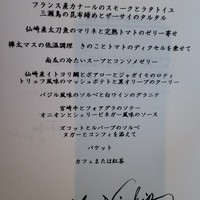 フランス産カナールのスモークとラタトイユ
三瀬鶏の昆布締めとザーサイのタルタル
仙崎産太刀魚のマリネと完熟トマトのゼリー寄せ
樺太マスの低温調理 きのことトマトのディクセルを乗せて
南瓜の冷たいスープとコンソメゼリー
仙崎産イトヨリ鯛とポアローとジャガイモのロティ
トリュフ風味のマッシュポテトと黒オリーブのクーリー
バジル風味のソルベと白ワインのグラニテ
宮崎牛とフォアグラのソテー
オニオンとシェリービネガー風味のソース
ズコットとルバーブのソルベ
ヌガーとコンフィを添えて
バケット
カフェまたは紅茶